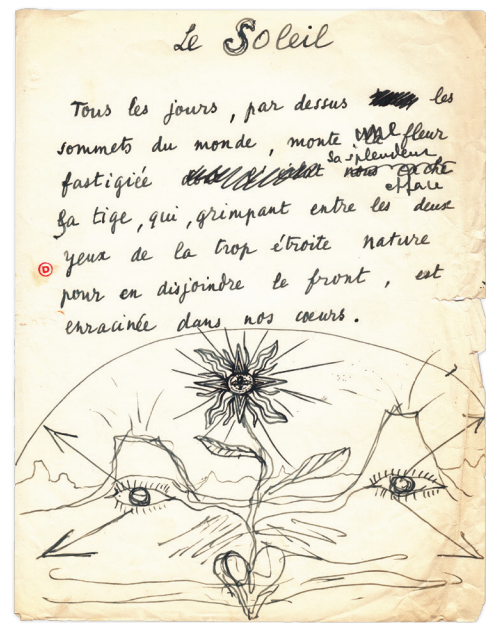 Le Soleil
Tous les jours, par dessus les
sommets du monde, monte une fleur
fastigiée sa splendeur nous cache
efface
la tige, qui, grimpant entre les deux
yeux de la trop étroite nature
pour en disjoindre le front, est
enracinée dans nos cœurs.
D